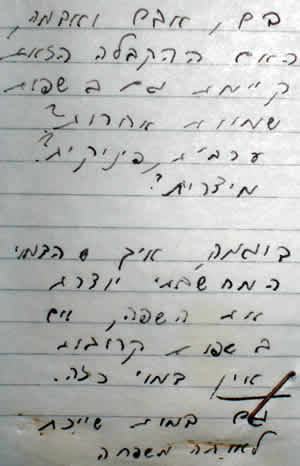 דם, אדם ואדמה,
האם ההקבלה הזאת
קיימת גם בשפות
שמיות אחרות?
ערבית, פיניקית?
מיצרית?
דוגמה, איך שהדמוי
המחשבתי יוצרת
את השפה, אם
בשפות קרובות
אין דמוי כזה.
גם דמות שייכת
לאותה משפחה